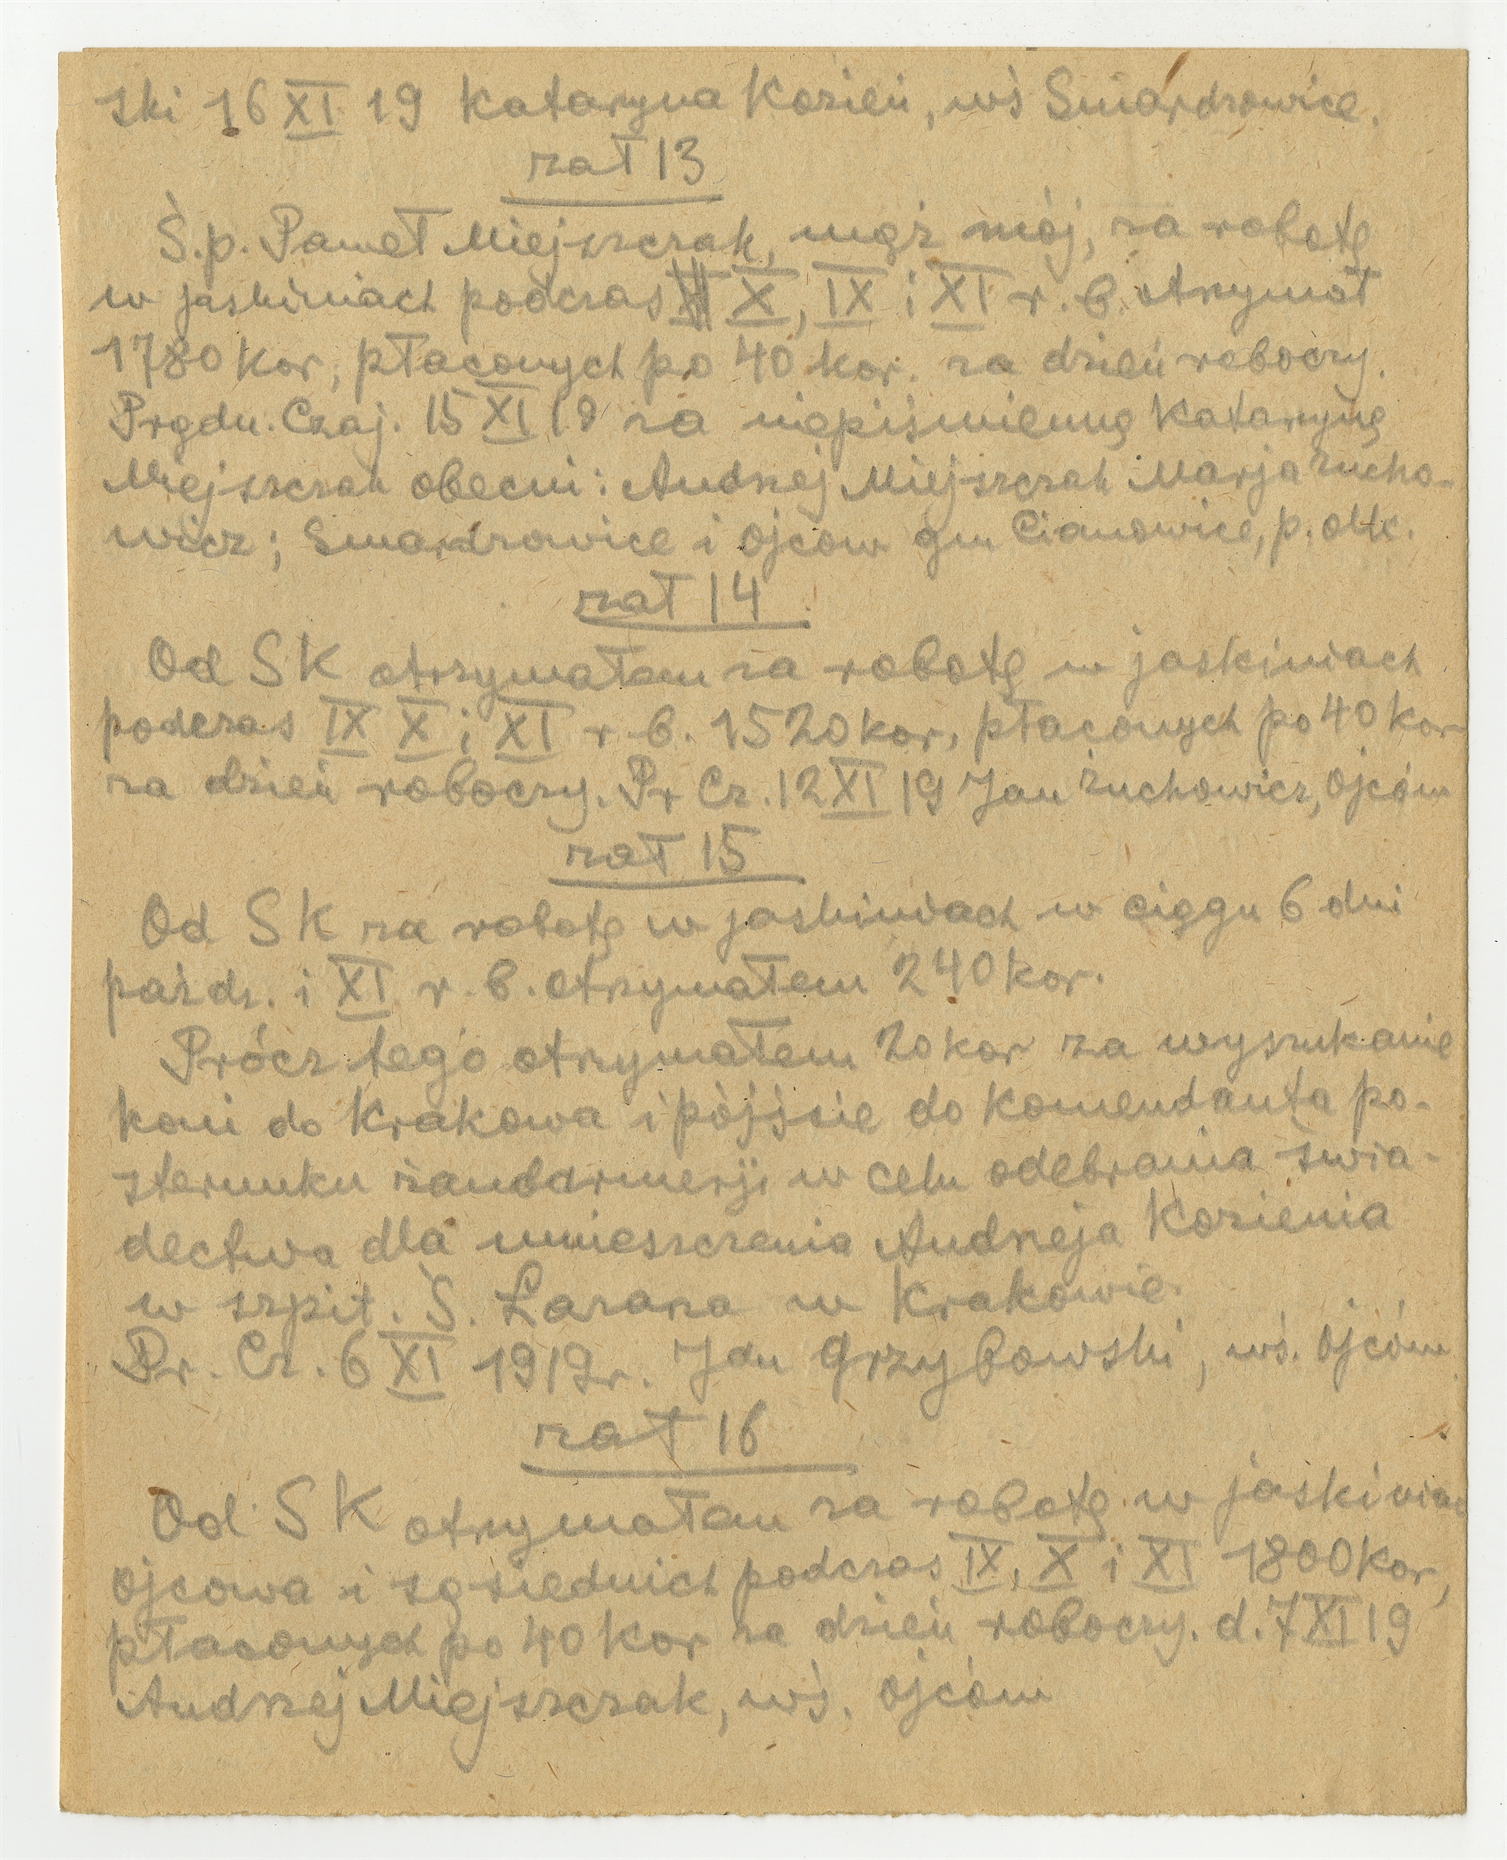 ski 16 XI 19 Kataryna Kozień, wś Smardzowice.
zał 13
Ś.p. Paweł Miejszczak, mąż mój, za robotę
w jaskiniach podczas X, IX i XI r. b. otrzymał
1780 kor, płaconych po 40 kor. za dzień roboczy.
Prądn. Czaj. 15 XI 19 za niepiśmienną Katarynę
Miejszczak obecni: Andrzej Miejszczak Marja Żucho-
wicz; Smardzowice i Ojców gm Cianowice, p. olk.
zał 14
Od SK otrzymałem za robotę w jaskiniach
podczas IX X i XI r. b. 1520 kor, płaconych po 40 kor
za dzień roboczy. Pr Cz. 12 XI 19 Jan Żuchowicz, Ojców
zał 15
Od SK za robotę w jaskiniach w ciągu 6 dni
paźdz. i XI r. b. otrzymałem 240 kor.
Prócz tego otrzymałem 20 kor za wyszukanie
koni do Krakowa i pójście do komendanta po-
sterunku żandarmerji w celu odebrania świa-
dectwa dla umieszczenia Andrzeja Kozienia
w szpit. Ś. Łazarza w Krakowie.
Pr. Cz. 6 XI 1919 r. Jan Grzybowski, wś. Ojców
zał 16
Od SK otrzymałem za robotę w jaskiniach
Ojcowa i sąsiednich podczas IX, X i XI 1800 kor,
płaconych po 40 kor za dzień roboczy. d. 7 XI 19
Andrzej Miejszczak, wś. Ojców